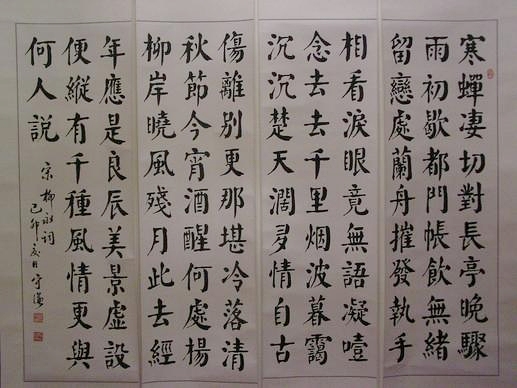 寒蟬凄切對長亭晚驟
雨初歇都門帳飲無緒
留戀處蘭舟摧發執手
相看淚眼竟無語凝噎
念去去千里烟波暮靄
沉沉楚天濶多情自古
傷離別更那堪冷落清
秋節今宵酒醒何處楊
柳岸曉風殘月此去經
年應是良辰美景虛設
便縱有千種風情更與
何人說
宋柳永詞
己卯